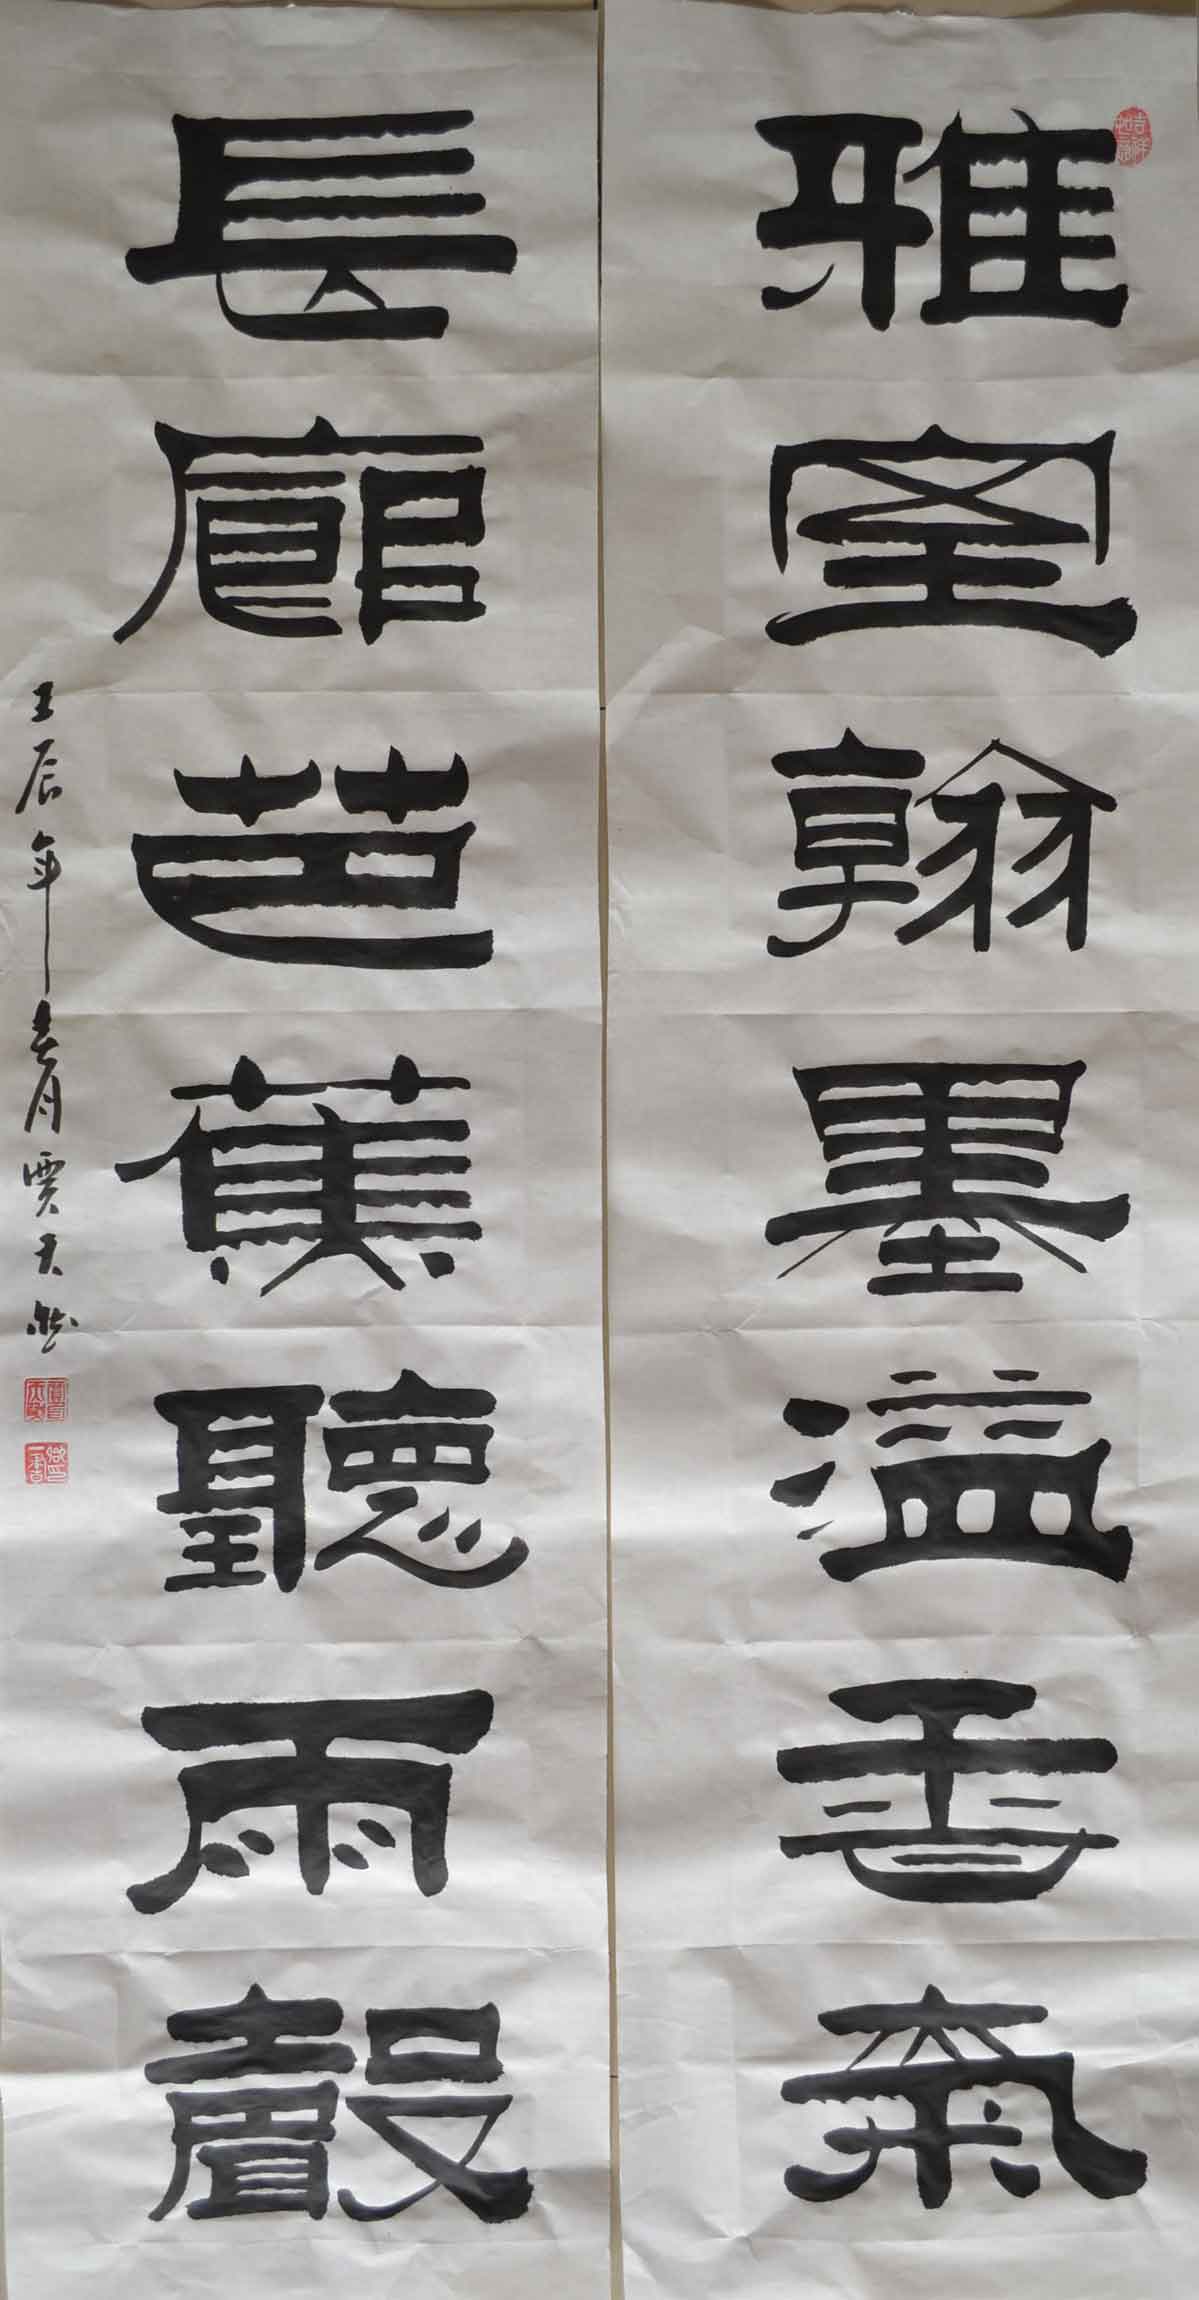 雅室翰墨溢香氣
長廊芭蕉聽雨聲
壬辰年春月賈天然